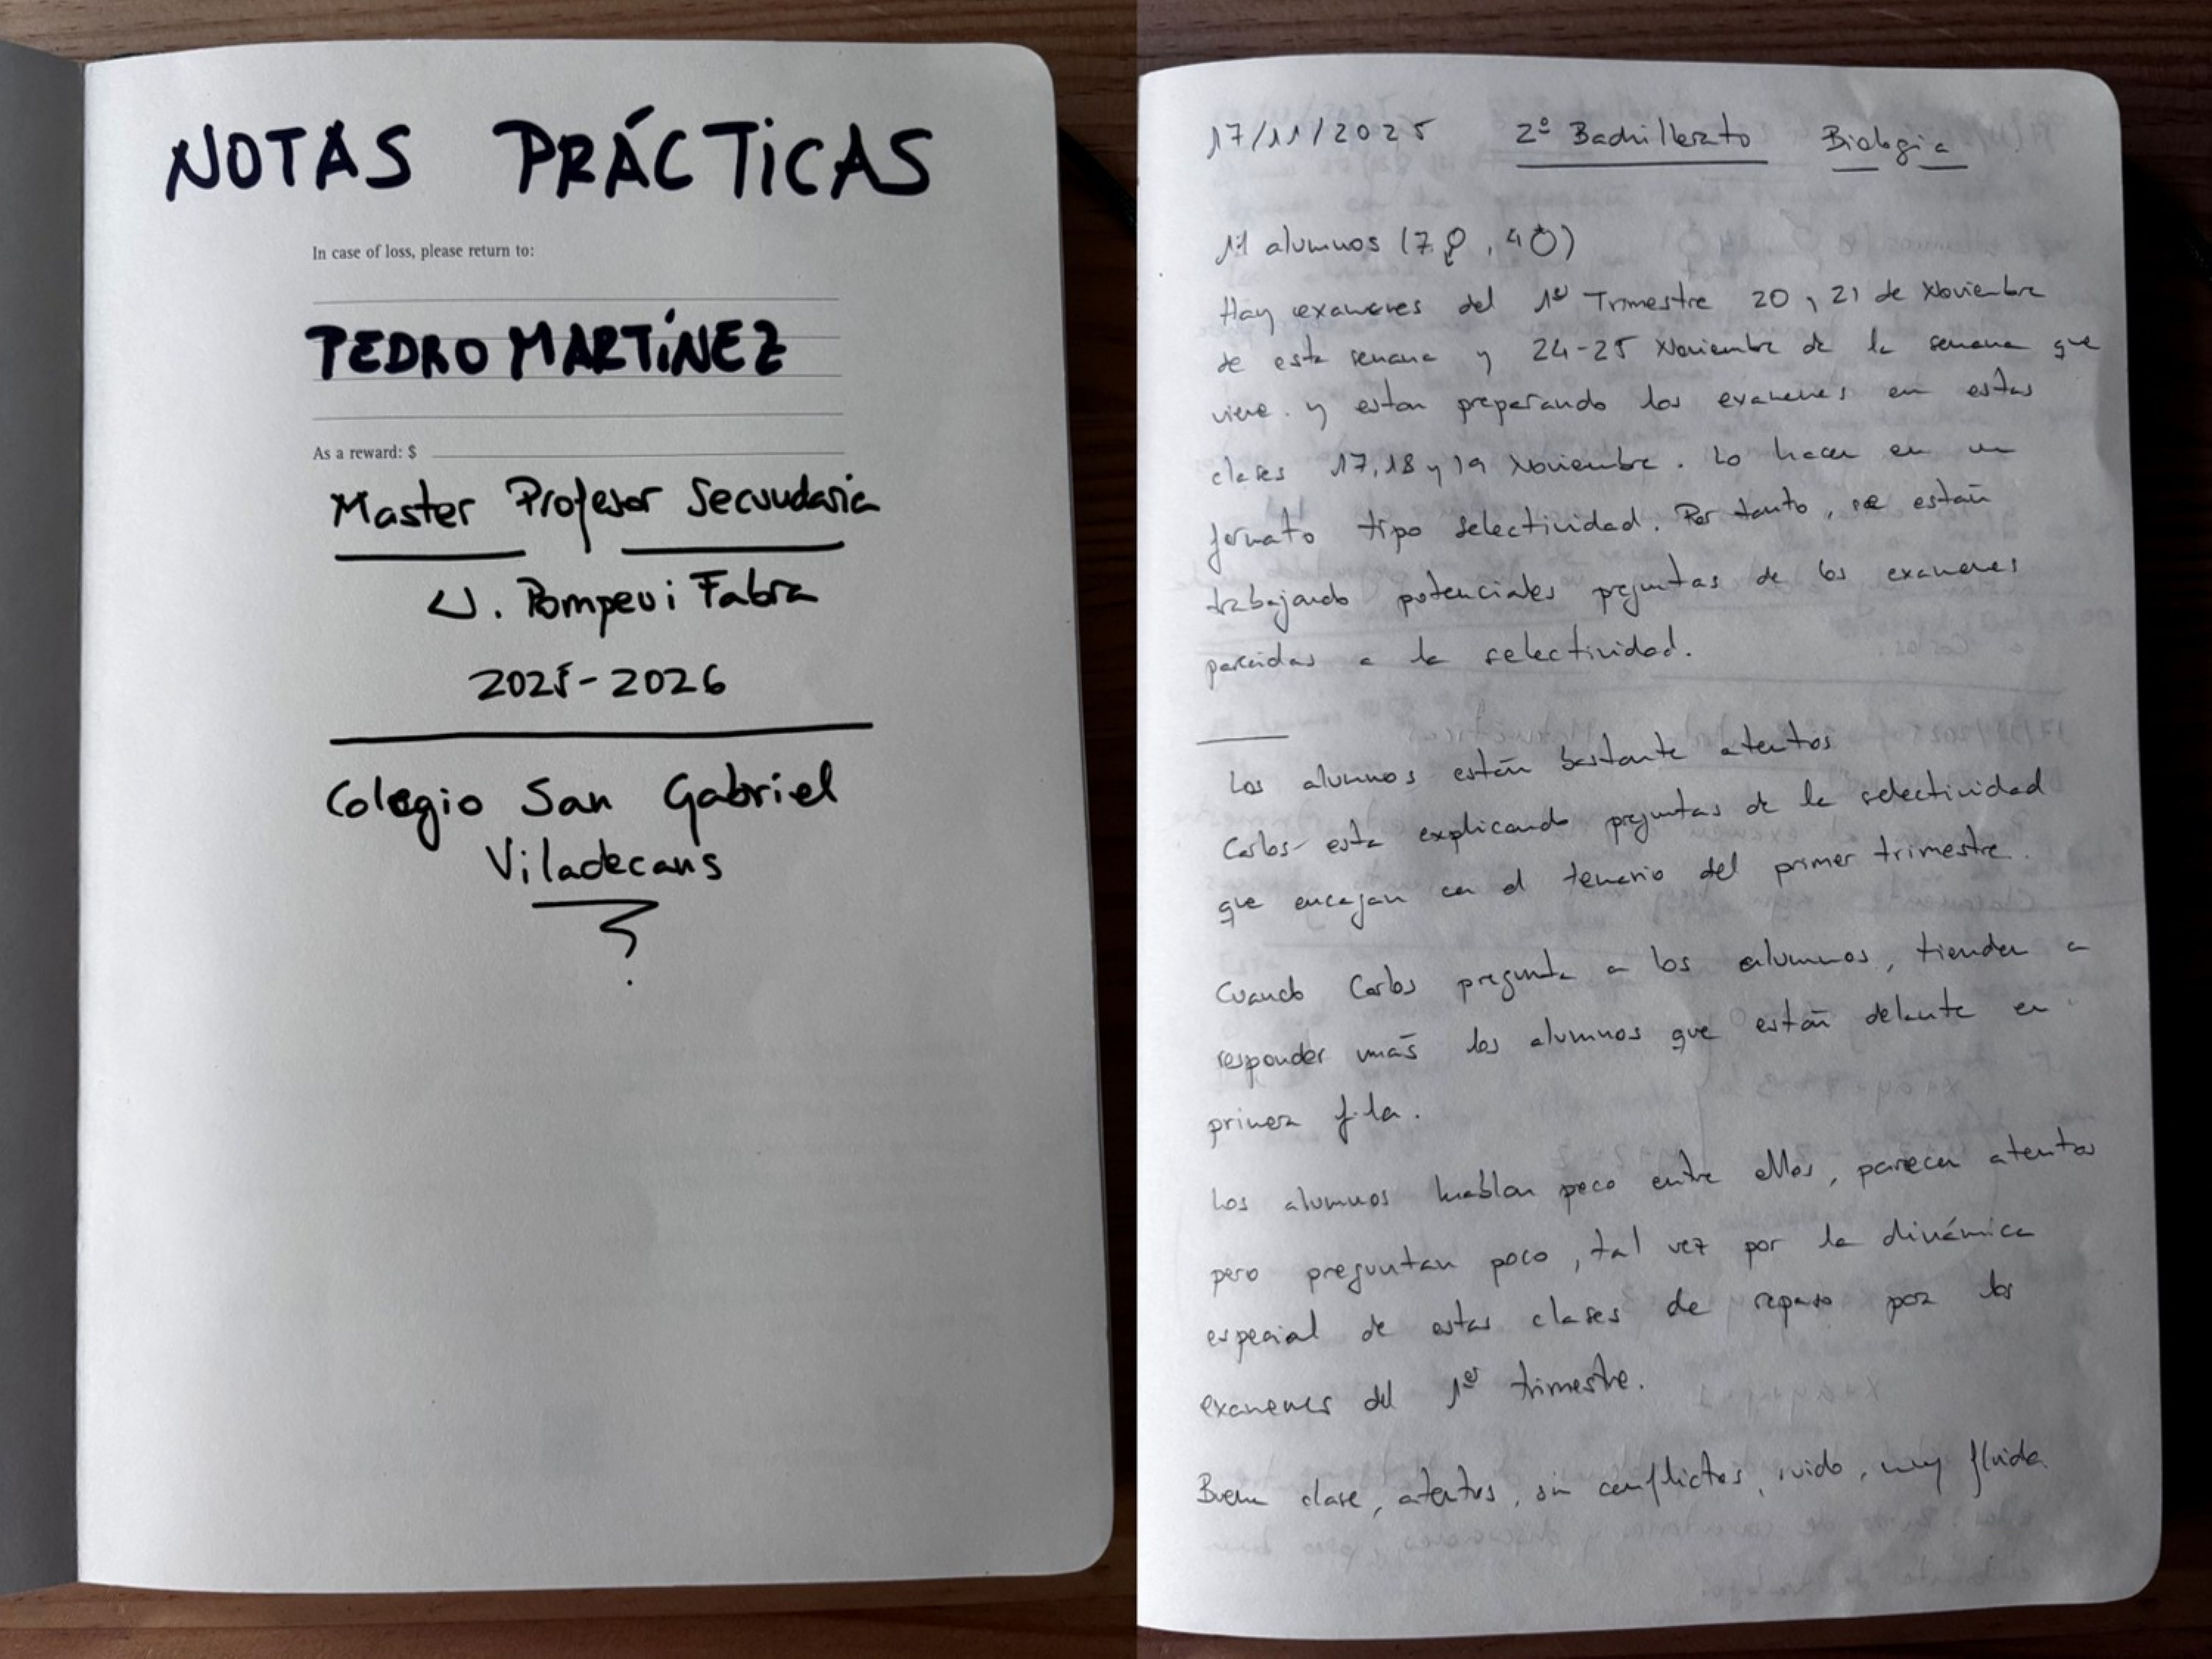 NOTAS PRÁCTICAS
In case of loss, please return to:
PEDRO MARTÍNEZ
As a reward: $
Master Profesor Secundaria
U. Pompeu i Fabra
2025-2026
Colegio San Gabriel
Viladecans
17/11/2025 2º Bachillerato Biologia
11 alumnos (7♀, 4♂)
Hay exámenes del 1er Trimestre 20 y 21 de Noviembre
de esta semana y 24-25 Noviembre de la semana que
viene. y estan preparando los exámenes en estas
clases 17, 18 y 19 Noviembre. Lo hacen en un
formato tipo selectividad. Por tanto, se están
trabajando potenciales preguntas de los exámenes
parecidas a la selectividad.
Los alumnos están bastante atentos
Carlos esta explicando preguntas de la selectividad
que encajan con el temario del primer trimestre.
Cuando Carlos pregunta a los alumnos, tienden a
responder más los alumnos que están delante en
primera fila.
Los alumnos hablan poco entre ellos, parecen atentos
pero preguntan poco, tal vez por la dinámica
especial de estas clases de repaso por los
exámenes del 1er trimestre.
Buena clase, atentos, sin conflictos, ruido, muy fluida